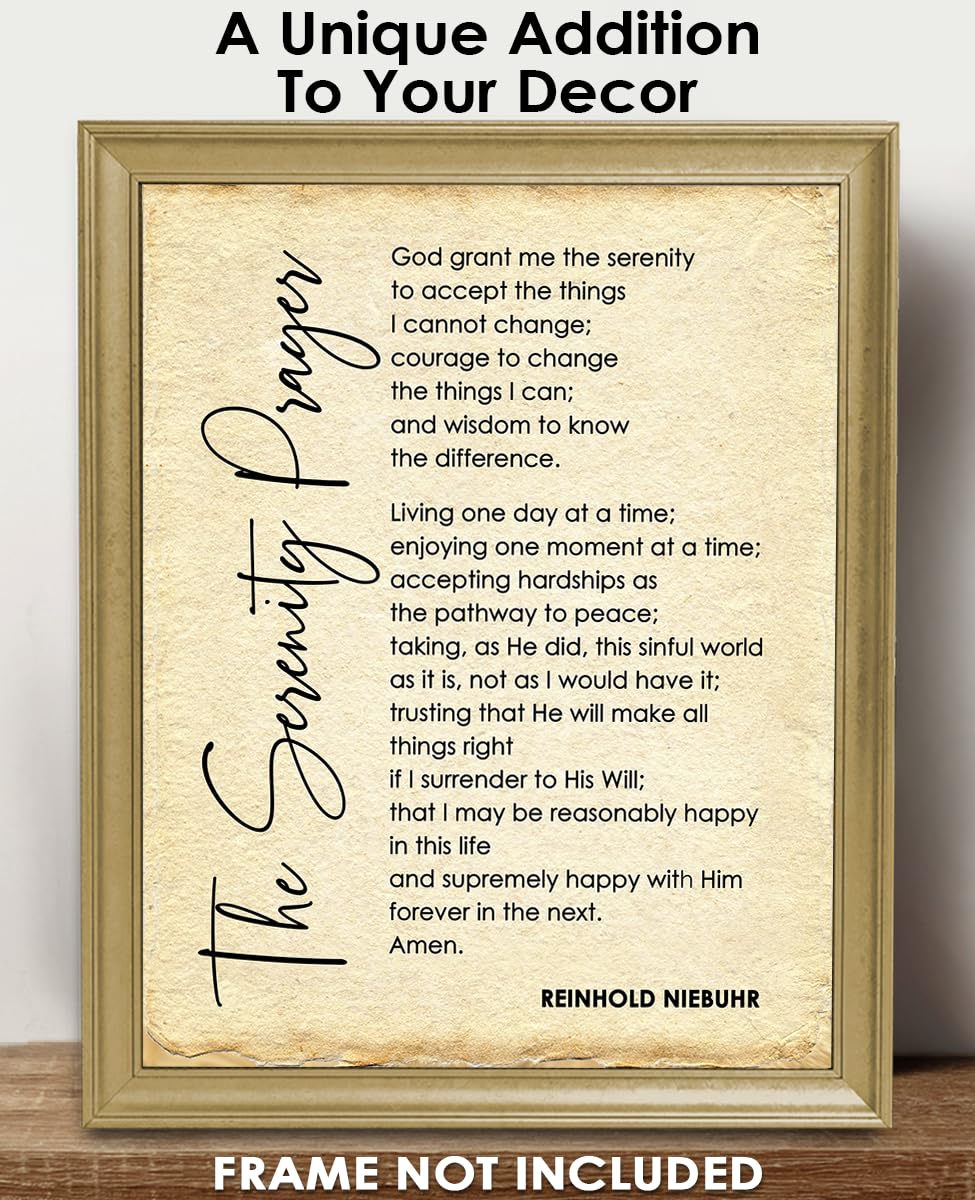 A Unique Addition
To Your Decor
The Serenity Prayer
God grant me the serenity
to accept the things
I cannot change;
courage to change
the things I can;
and wisdom to know
the difference.
Living one day at a time;
enjoying one moment at a time;
accepting hardships as
the pathway to peace;
taking, as He did, this sinful world
as it is, not as I would have it;
trusting that He will make all
things right
if I surrender to His Will;
that I may be reasonably happy
in this life
and supremely happy with Him
forever in the next.
Amen.
REINHOLD NIEBUHR
FRAME NOT INCLUDED